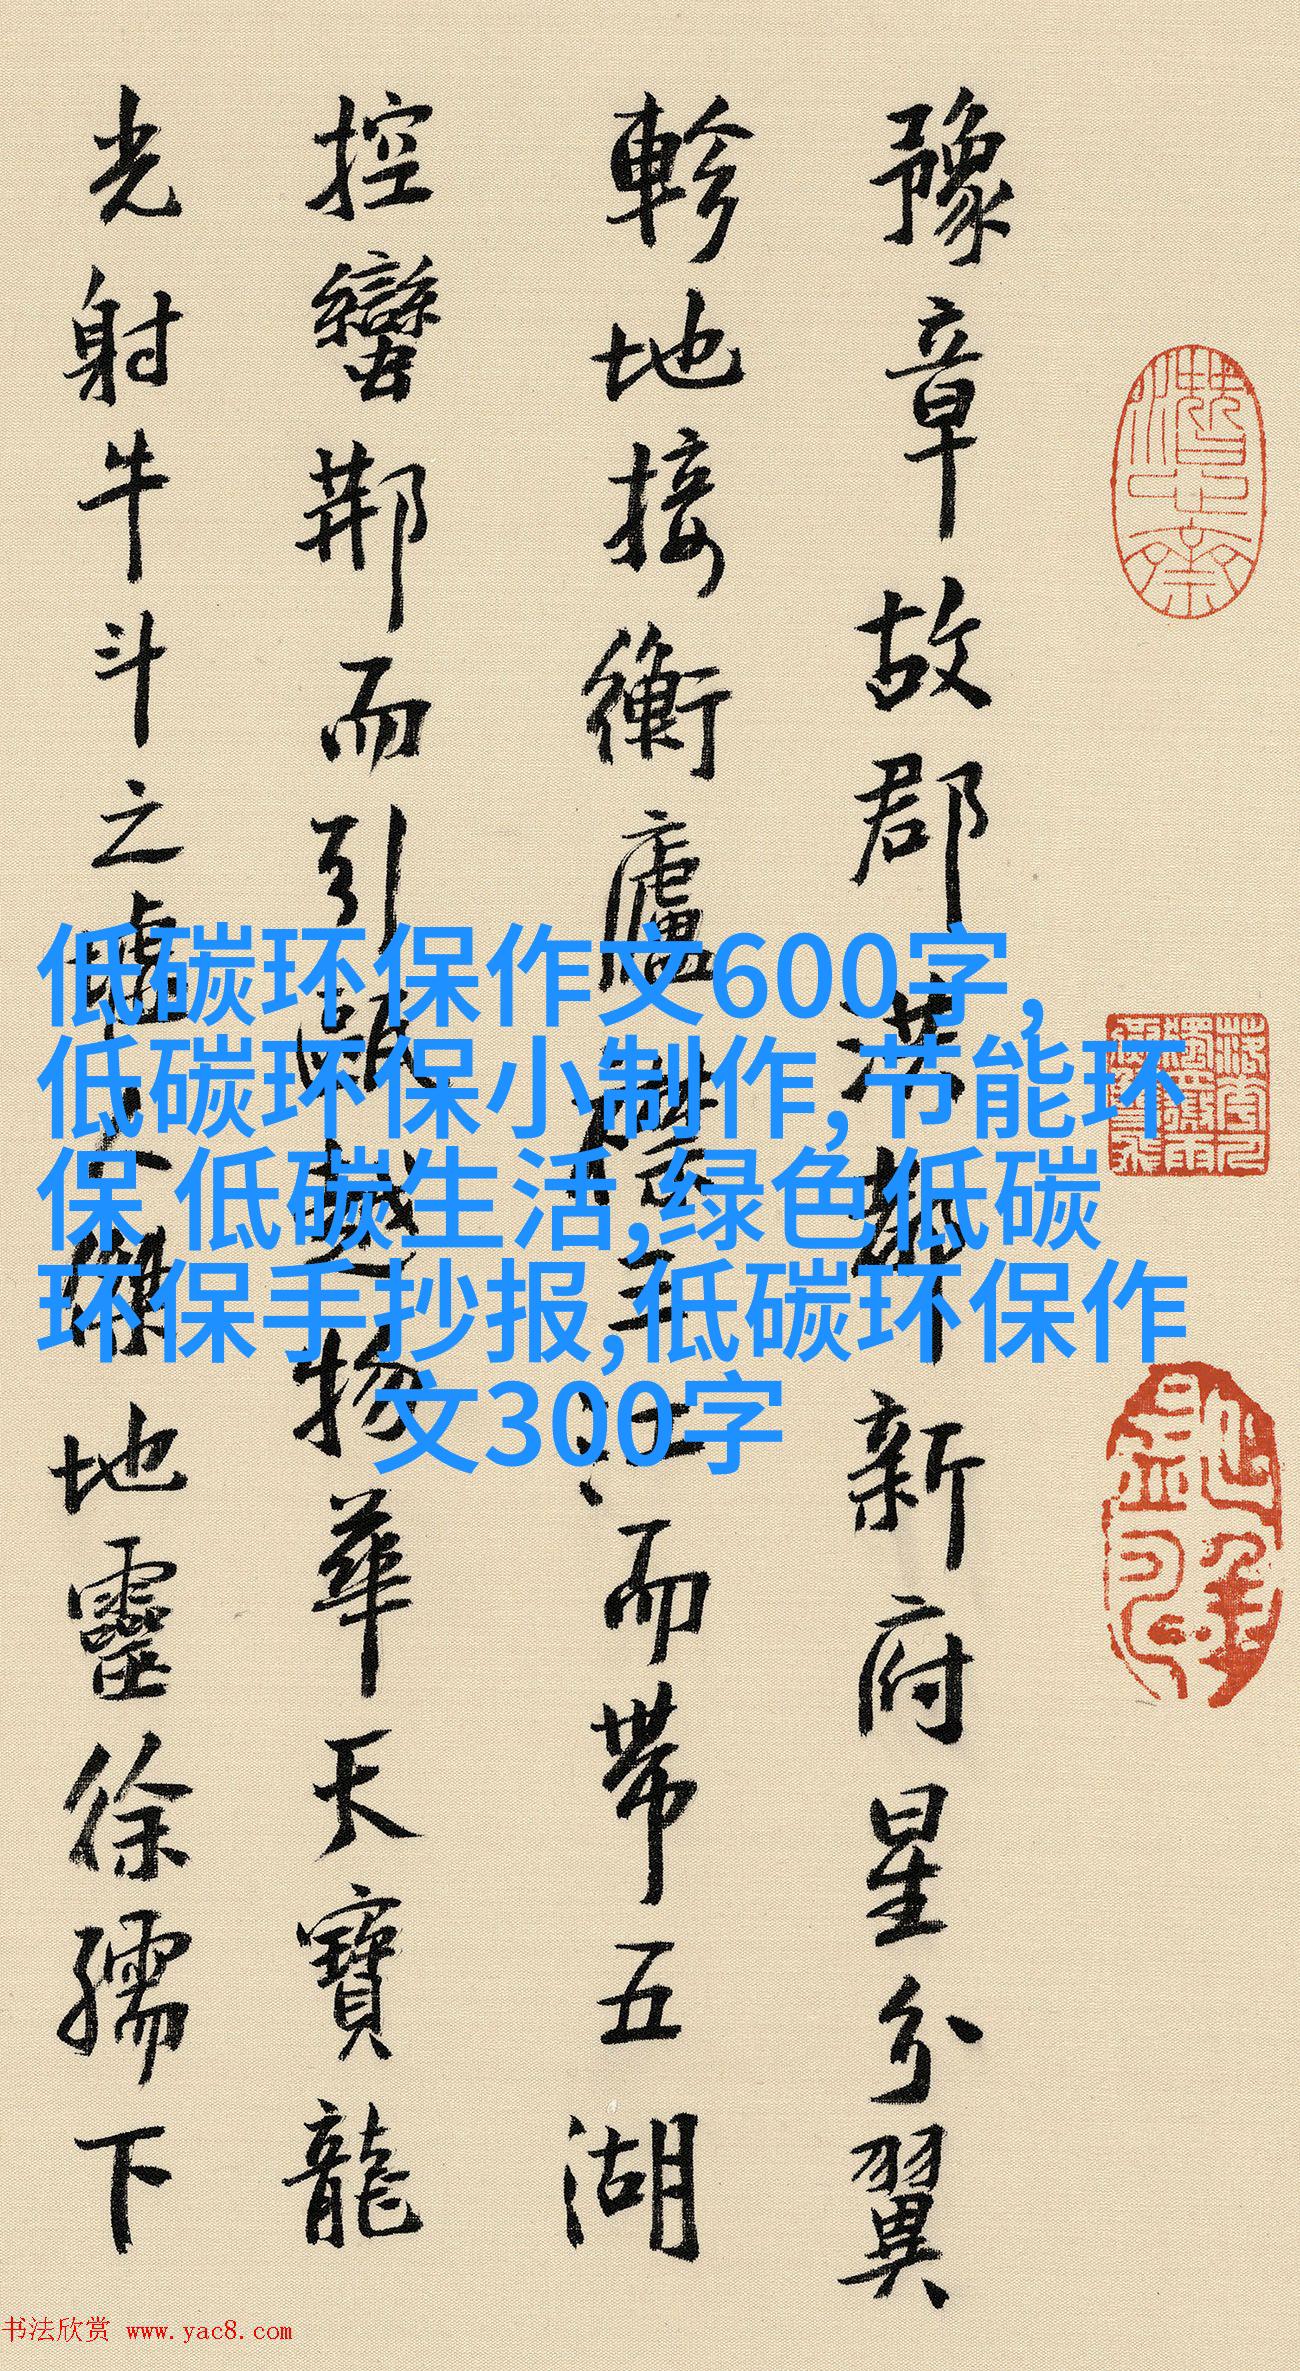 豫章故郡洪都新府星分翼
軫地接衡廬襟三江而帶五湖
控蠻荆而引甌越物華天寶龍
光射牛斗之墟人傑地靈徐孺下
低碳环保作文600字,
低碳环保小制作,节能环
保 低碳生活,绿色低碳
环保手抄报,低碳环保作
文300字
书法欣赏 www.yac8.com